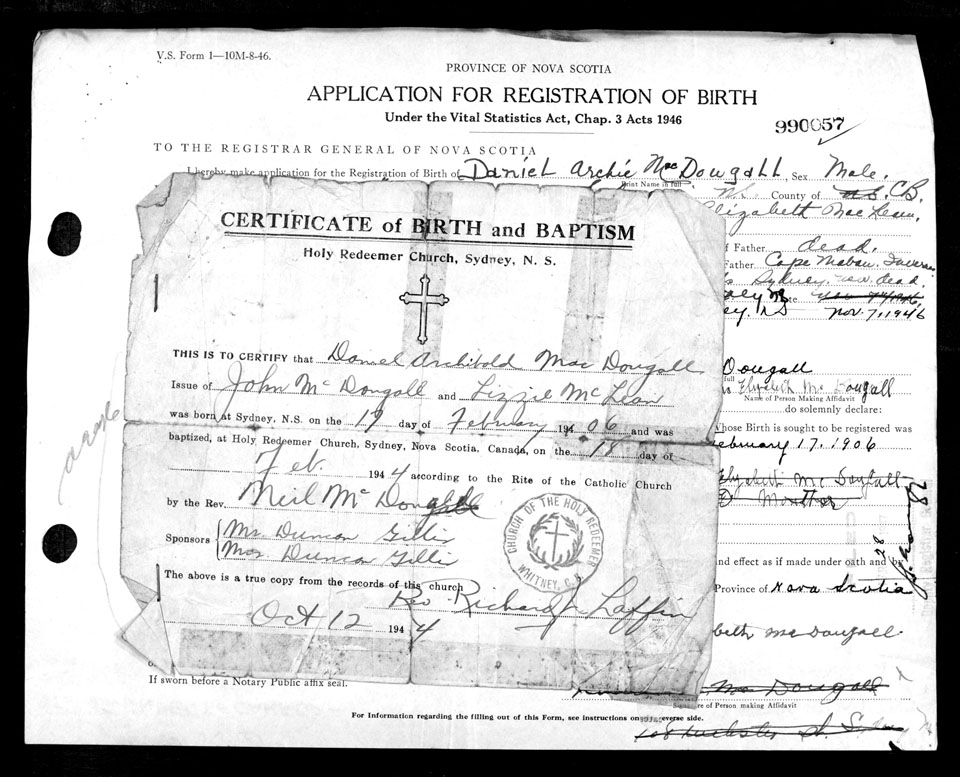 V.S. Form 1—10M-8-46.
PROVINCE OF NOVA SCOTIA
APPLICATION FOR REGISTRATION OF BIRTH
Under the Vital Statistics Act, Chap. 3 Acts 1946
990057
TO THE REGISTRAR GENERAL OF NOVA SCOTIA
I hereby make application for the Registration of Birth of Daniel Archie MacDougall, Sex Male.
Print Name in full
County of C.B.
Elizabeth MacLean,
f Father dead.
Father Cape Mabou
Sydney, now dead.
Nov. 7, 1946
CERTIFICATE of BIRTH and BAPTISM
Holy Redeemer Church, Sydney, N. S.
THIS IS TO CERTIFY that Daniel Archibald MacDougall
Issue of John McDougall and Lizzie McLean
was born at Sydney, N.S. on the 17 day of February 194 06 and was
baptized, at Holy Redeemer Church, Sydney, Nova Scotia, Canada, on the 18 day of
Feb. 194 4 according to the Rite of the Catholic Church
by the Rev. Neil McDougall
Sponsors Mr. Duncan Gillis
Mrs. Duncan Gillis
The above is a true copy from the records of this church
Rev Richard J Laffin
Oct 12 194 4
CHURCH OF THE HOLY REDEEMER
WHITNEY, C.B.
Dougall
full
Elizabeth McDougall
Name of Person Making Affidavit
do solemnly declare:
whose Birth is sought to be registered was
ebruary 17, 1906
Elizabeth McDougall
Mother
and effect as if made under oath and by
Province of Nova Scotia
beth MacDougall
MacDougall
Signature of Person making Affidavit
If sworn before a Notary Public affix seal.
For Information regarding the filling out of this Form, see instructions on reverse side.